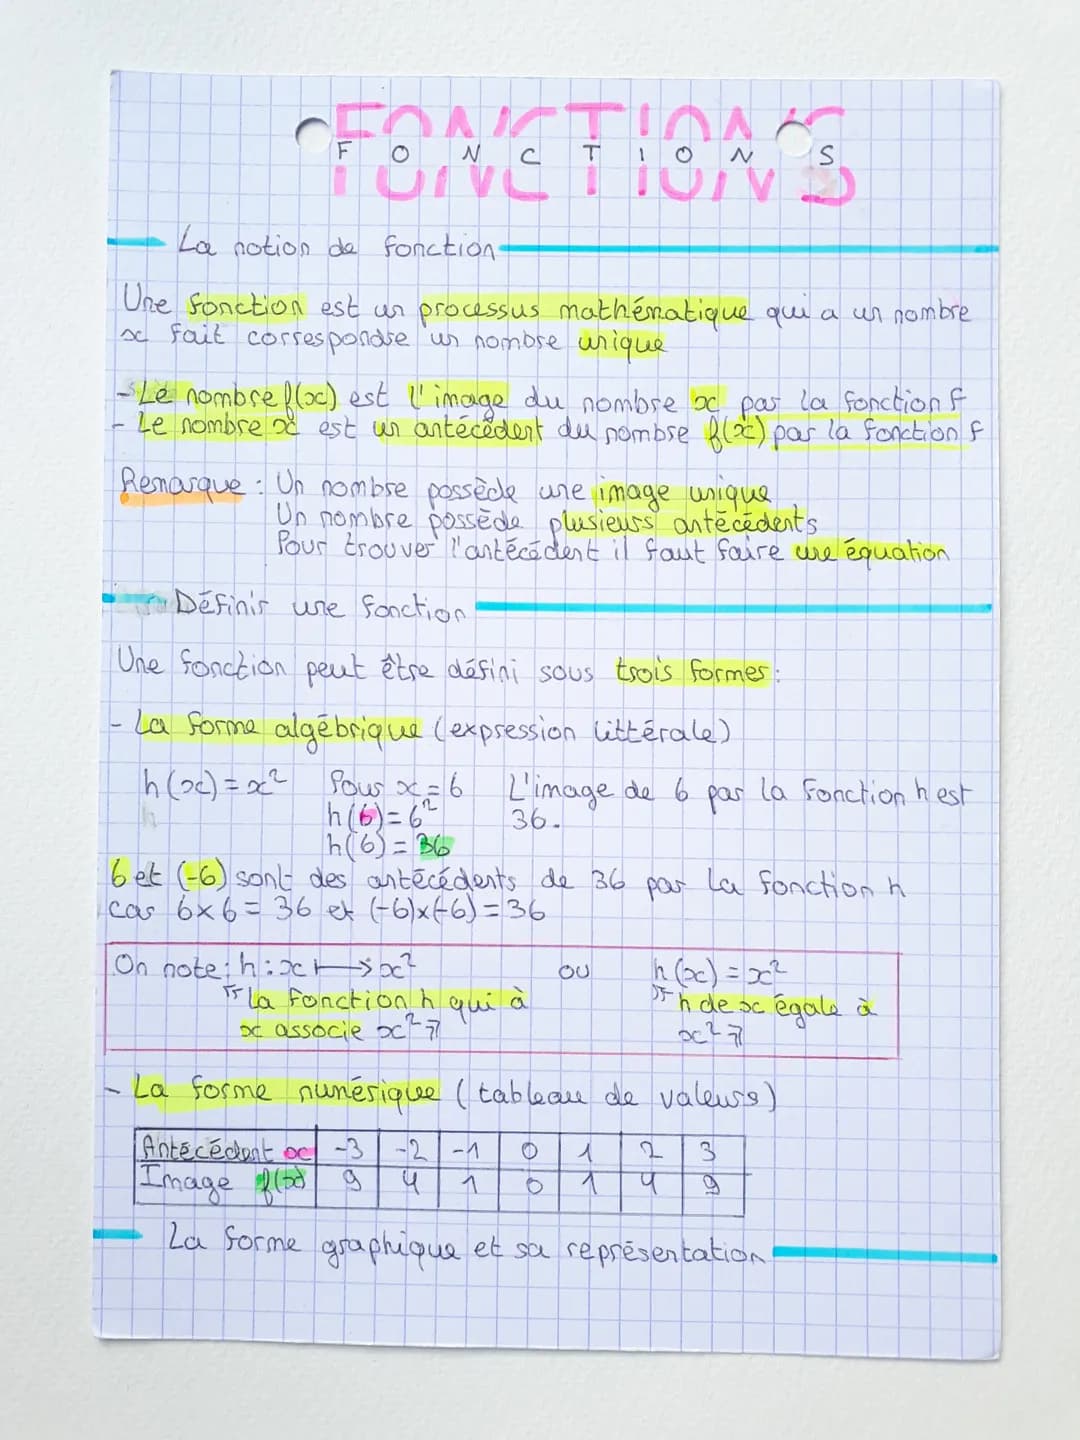 FONCTIONS
La notion de fonction
Une fonction est un processus mathématique qui a un nombre
x fait correspondre un nombre unique
- Le nombre f(x) est l'image du nombre x par la fonction f
- Le nombre x est un antécédent du nombre f(x) par la fonction f
Remarque : Un nombre possède une image unique
Un nombre possède plusieurs antécédents
Pour trouver l'antécédent il faut faire une équation
Définir une fonction
Une fonction peut être défini sous trois formes :
- La forme algébrique (expression littérale)
h(x) = x² Pour x = 6 L'image de 6 par la fonction h est
h(6) = 6² 36.
h(6) = 36
6 et (-6) sont des antécédents de 36 par la fonction h
car 6×6 = 36 et (-6)×(-6) = 36
On note : h : x ⟼ x² ou h(x) = x²
" La fonction h qui à " h de x égale à
x associe x² " x² "
- La forme numérique (tableau de valeurs)
Antécédent x -3 -2 -1 0 1 2 3
Image f(x) 9 4 1 0 1 4 9
La forme graphique et sa représentation